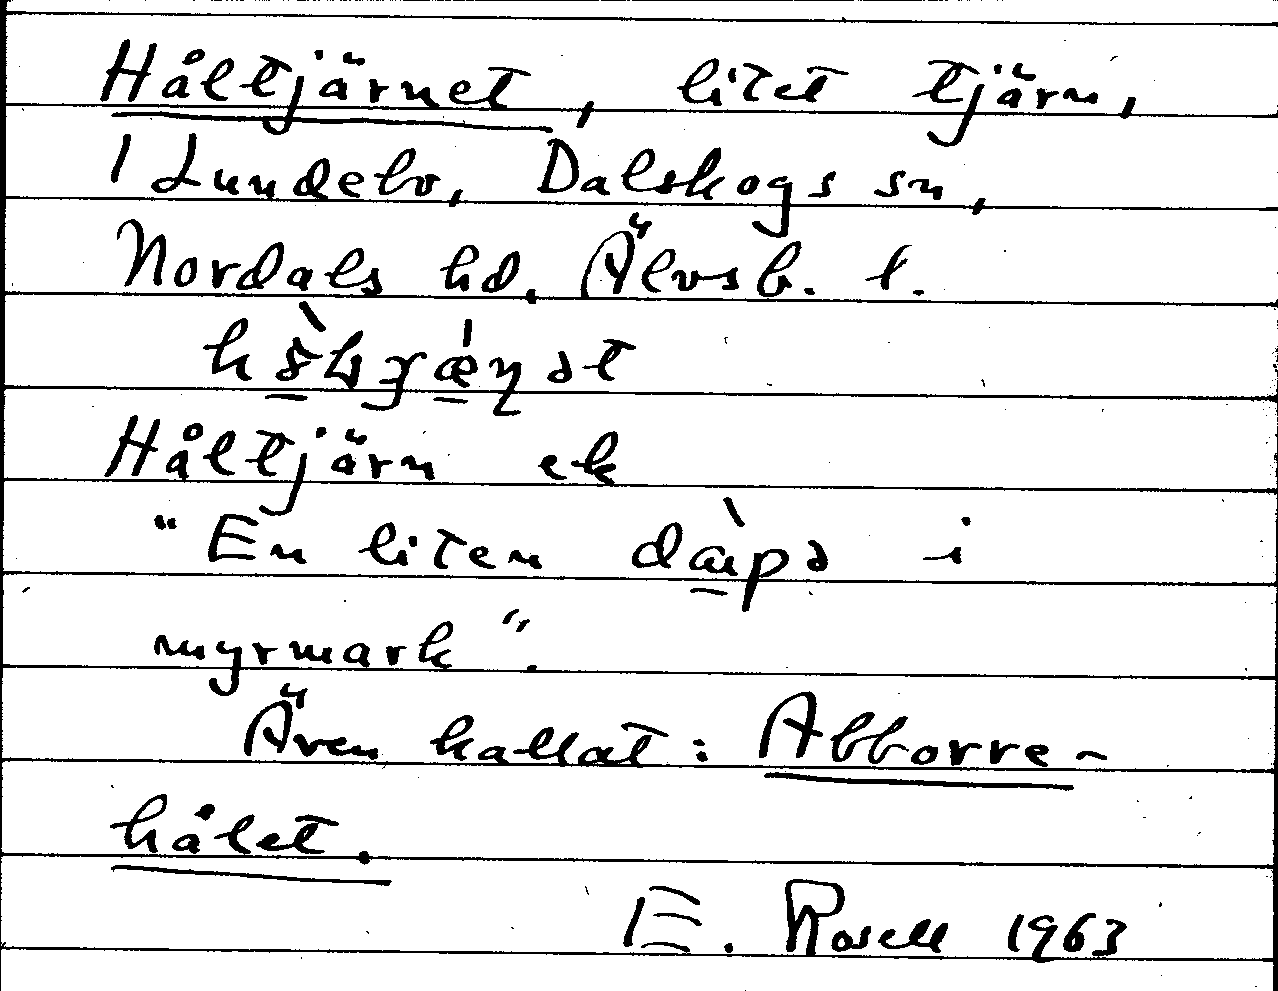 Håltjärnet, litet tjärn,
i Lundebo, Dalskogs sn,
Nordals hd. Älvsb. l.
Håltjärn ek
"En liten i
myrmark".
Även kallat: Abborre-
hålet.
E. Rosell 1963